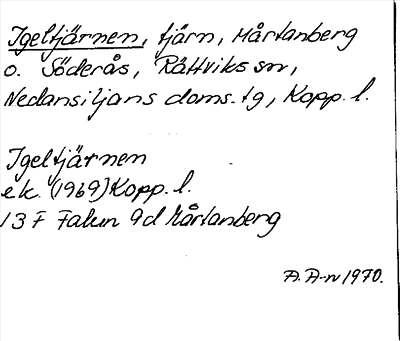 Igeltjärnen, tjärn, Mårtanberg
o. Söderås, Rättviks sn,
Nedansiljans doms. tg, Kopp. l.
Igeltjärnen
ek. (1969) Kopp. l.
13 F Falun 9d Mårtanberg
A. A-n 1970.